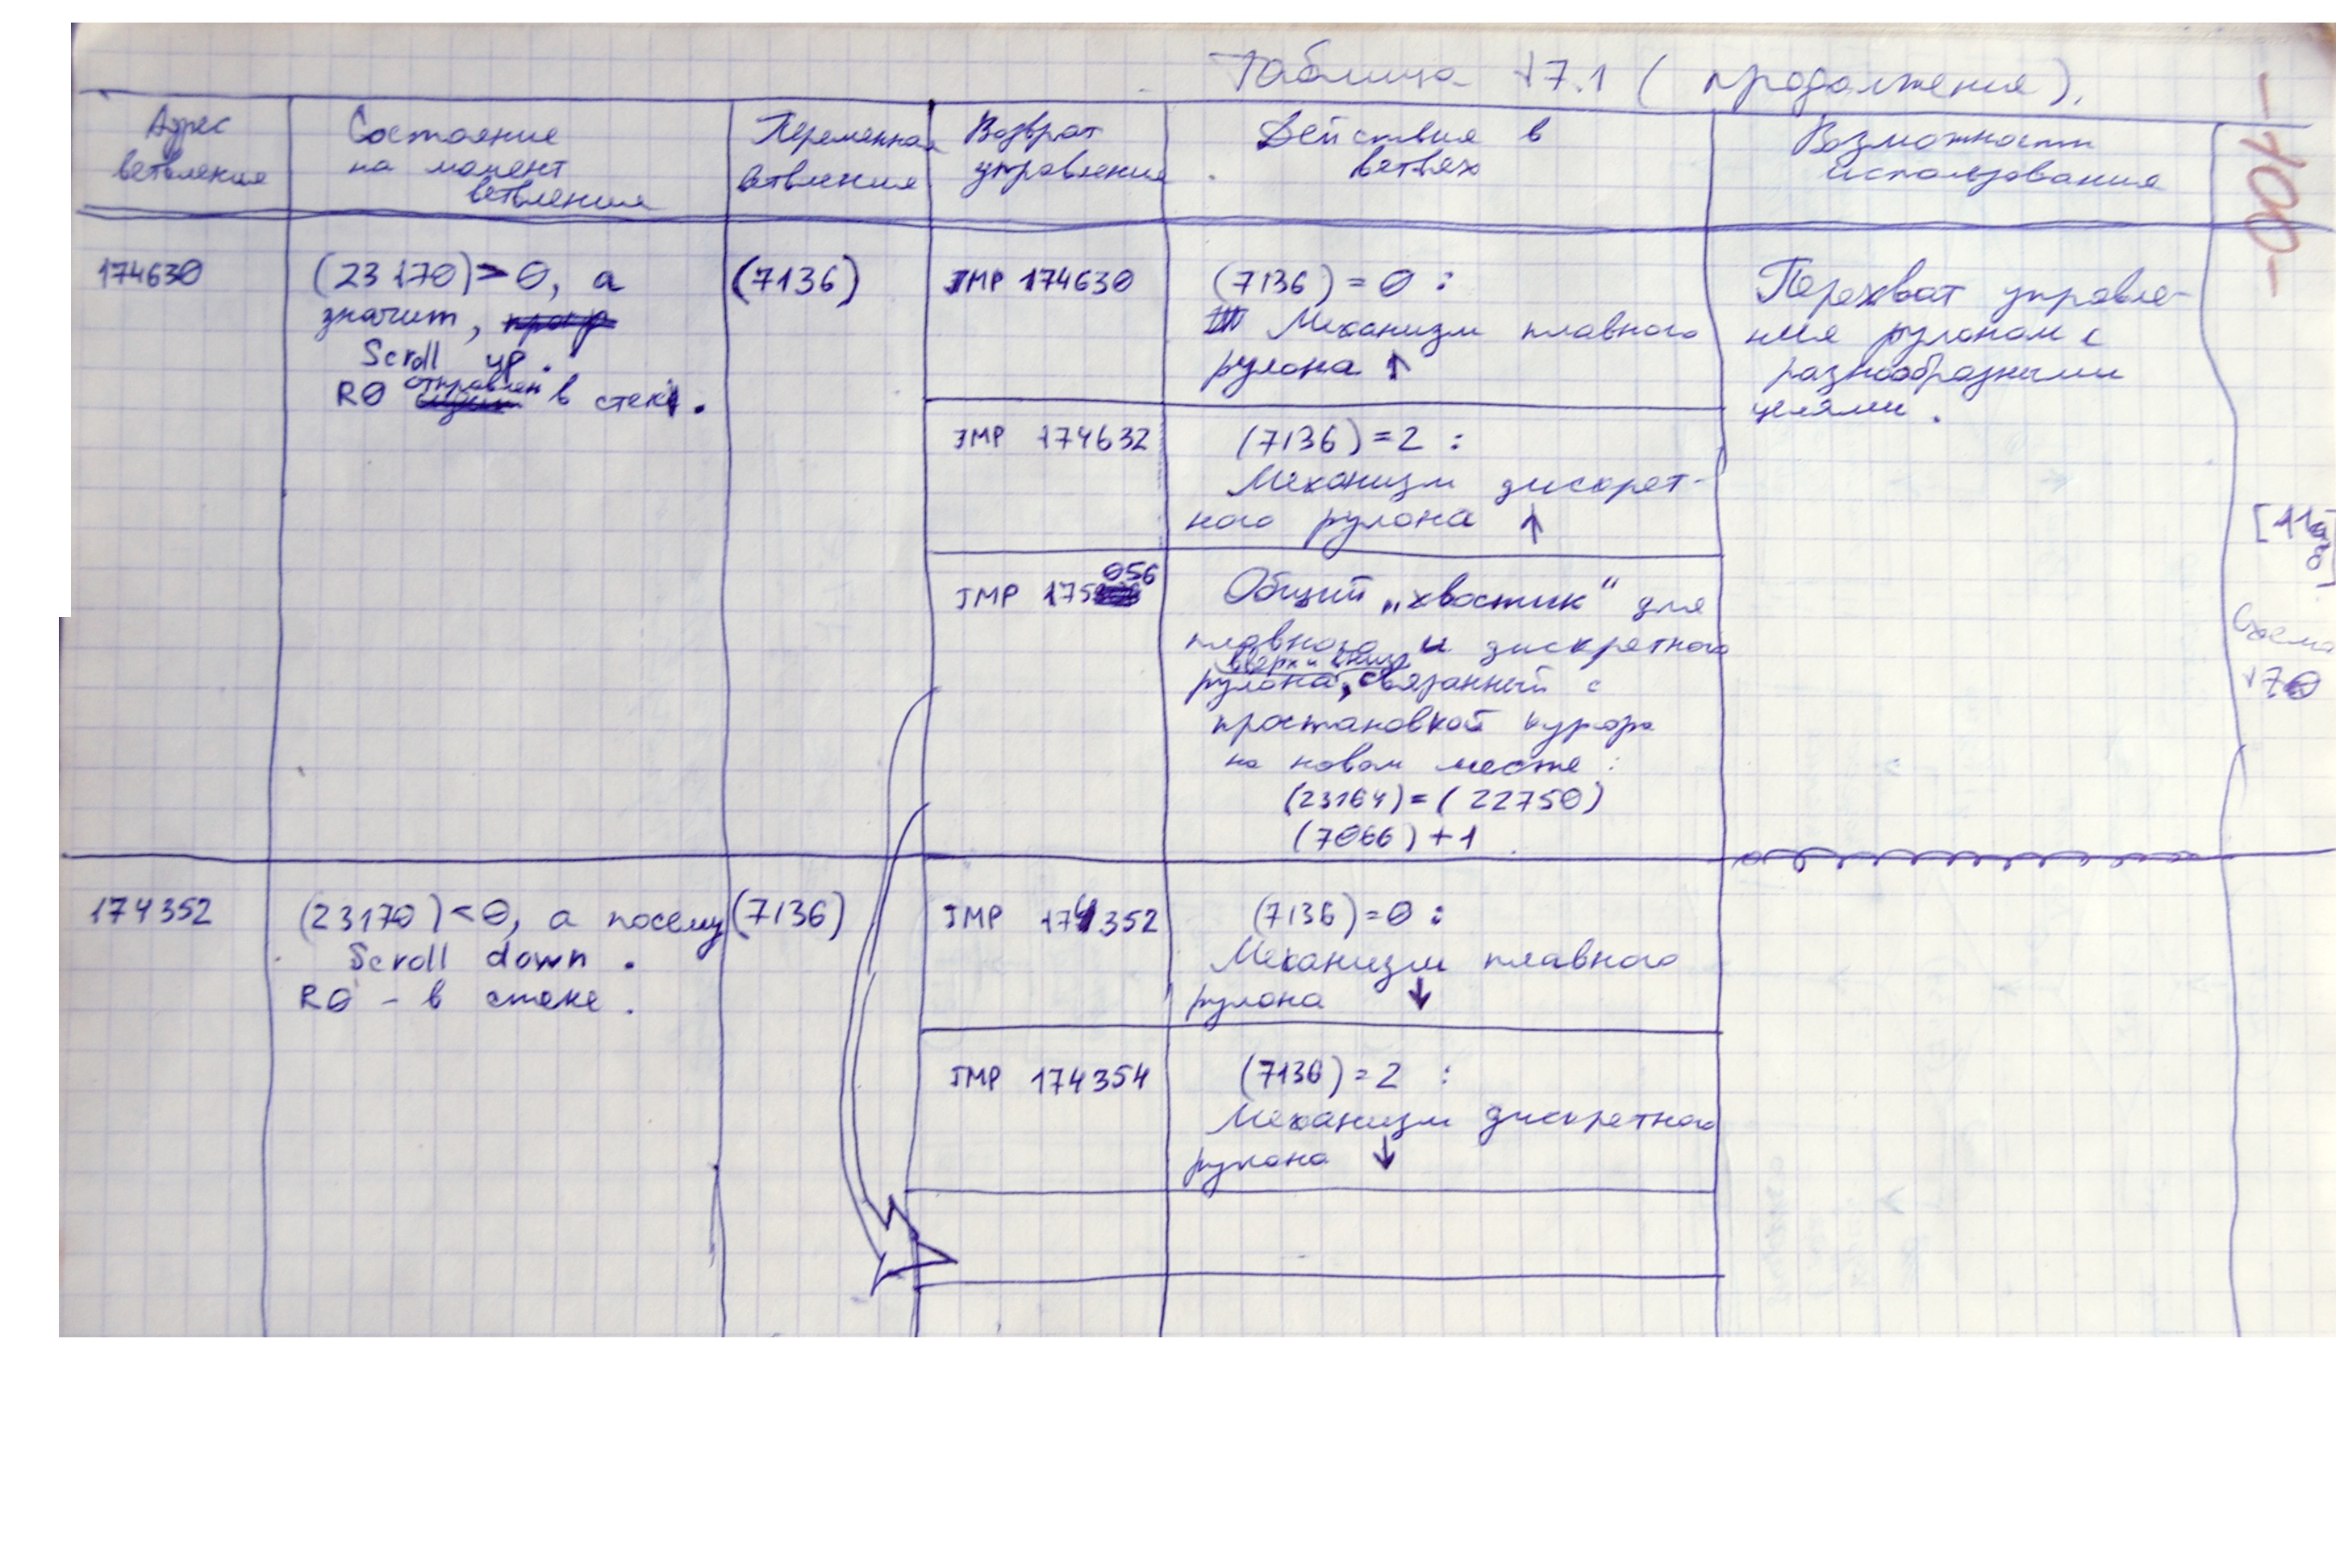 Таблица 17.1 (продолжение).
-100-
Адрес
ветвления
Состояние
на момент
ветвления
Переменная
ветвления
Возврат
управления
Действия в
ветвях
Возможности
использования
174630
(23170)>0, а
значит,
Scroll up.
R0 отправлен в стек.
(7136)
JMP 174630
(7136)=0:
Механизм плавного
рулона ↑
Перехват управле-
ния рулоном с
разнообразными
целями.
JMP 174632
(7136)=2:
Механизм дискрет-
ного рулона ↑
JMP 175056
Общий „хвостик“ для
плавного и дискретного
вверх и вниз
рулона, связанный с
простановкой курсора
на новом месте:
(23164)=(22750)
(7066)+1
Схема
170
174352
(23170)<0, а посему
Scroll down.
R0 - в стеке.
(7136)
JMP 174352
(7136)=0:
Механизм плавного
рулона ↓
JMP 174354
(7136)=2:
Механизм дискретного
рулона ↓